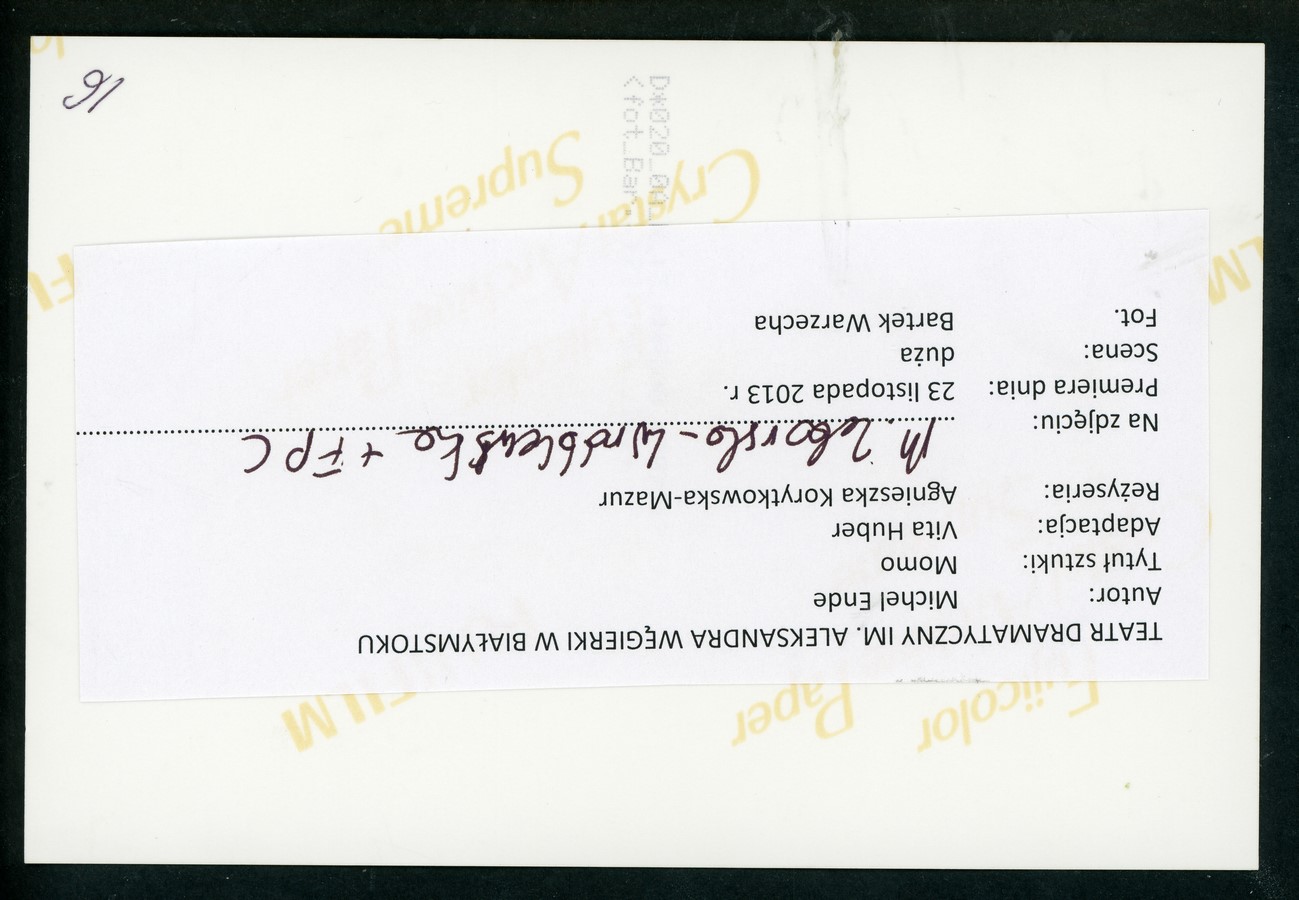 TEATR DRAMATYCZNY IM. ALEKSANDRA WĘGIERKI W BIAŁYMSTOKU
Autor: Michel Ende
Tytuł sztuki: Momo
Adaptacja: Vita Huber
Reżyseria: Agnieszka Korytkowska-Mazur
Na zdjęciu: M. Zaborska-Wróblewska + FPC
Premiera dnia: 23 listopada 2013 r.
Scena: duża
Fot. Bartek Warzecha
Fujicolor
Paper
Crystal Archive
Supreme
16
D*020_04
<fot_Bar